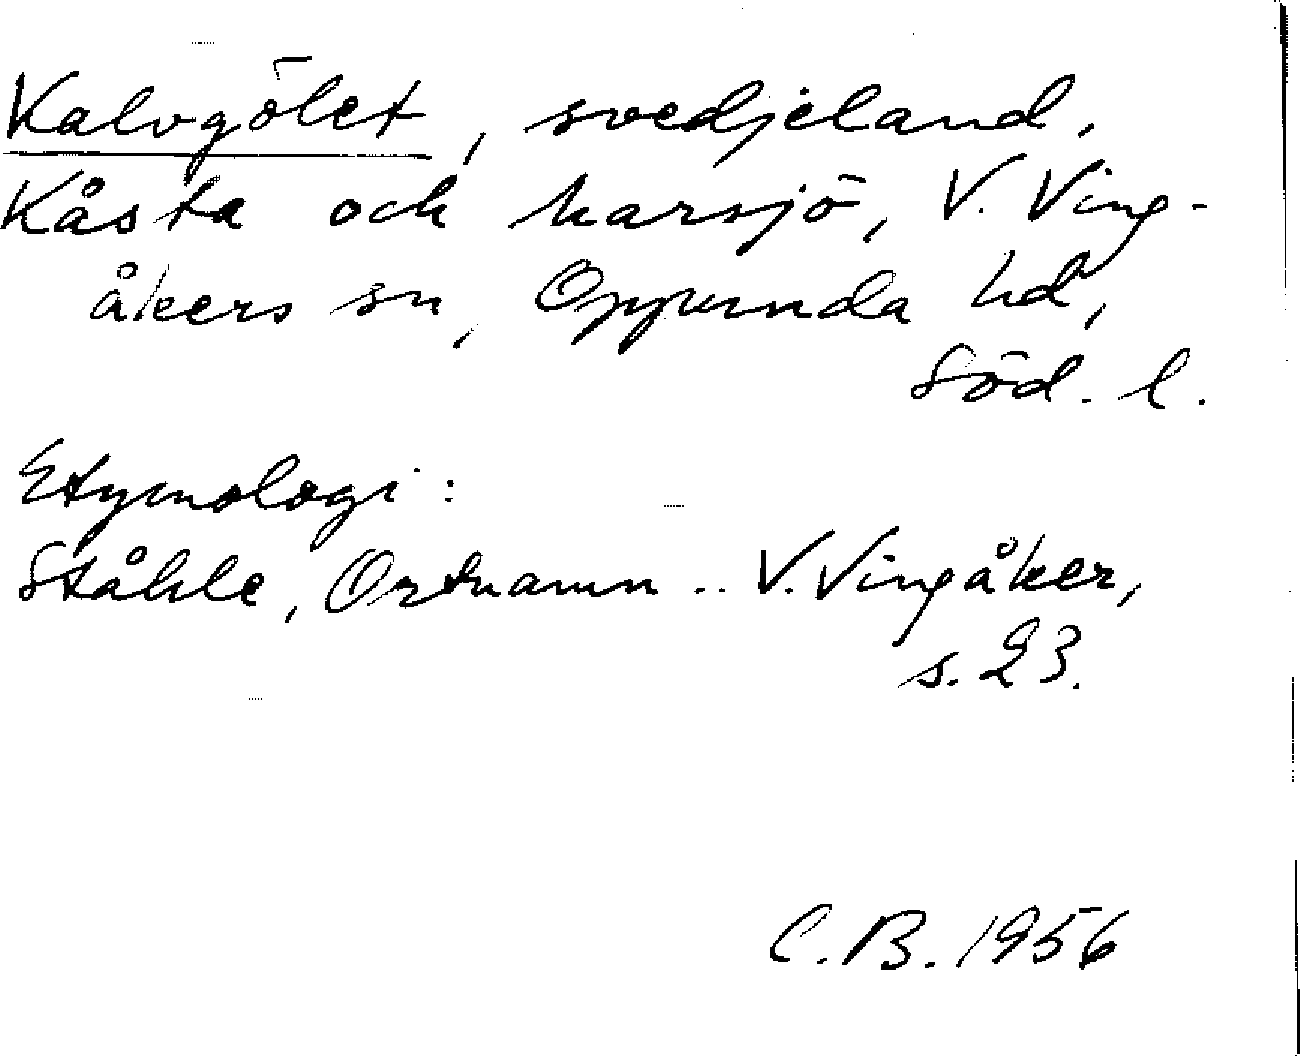 Kalvgölet, svedjeland.
Kåsta och harsjö, V. Ving-
åkers sn, Oppunda hd,
Söd. l.
Etymologi:
Ståhle, Ortnamn .. V. Vingåker,
s. 23.
C. B. 1956